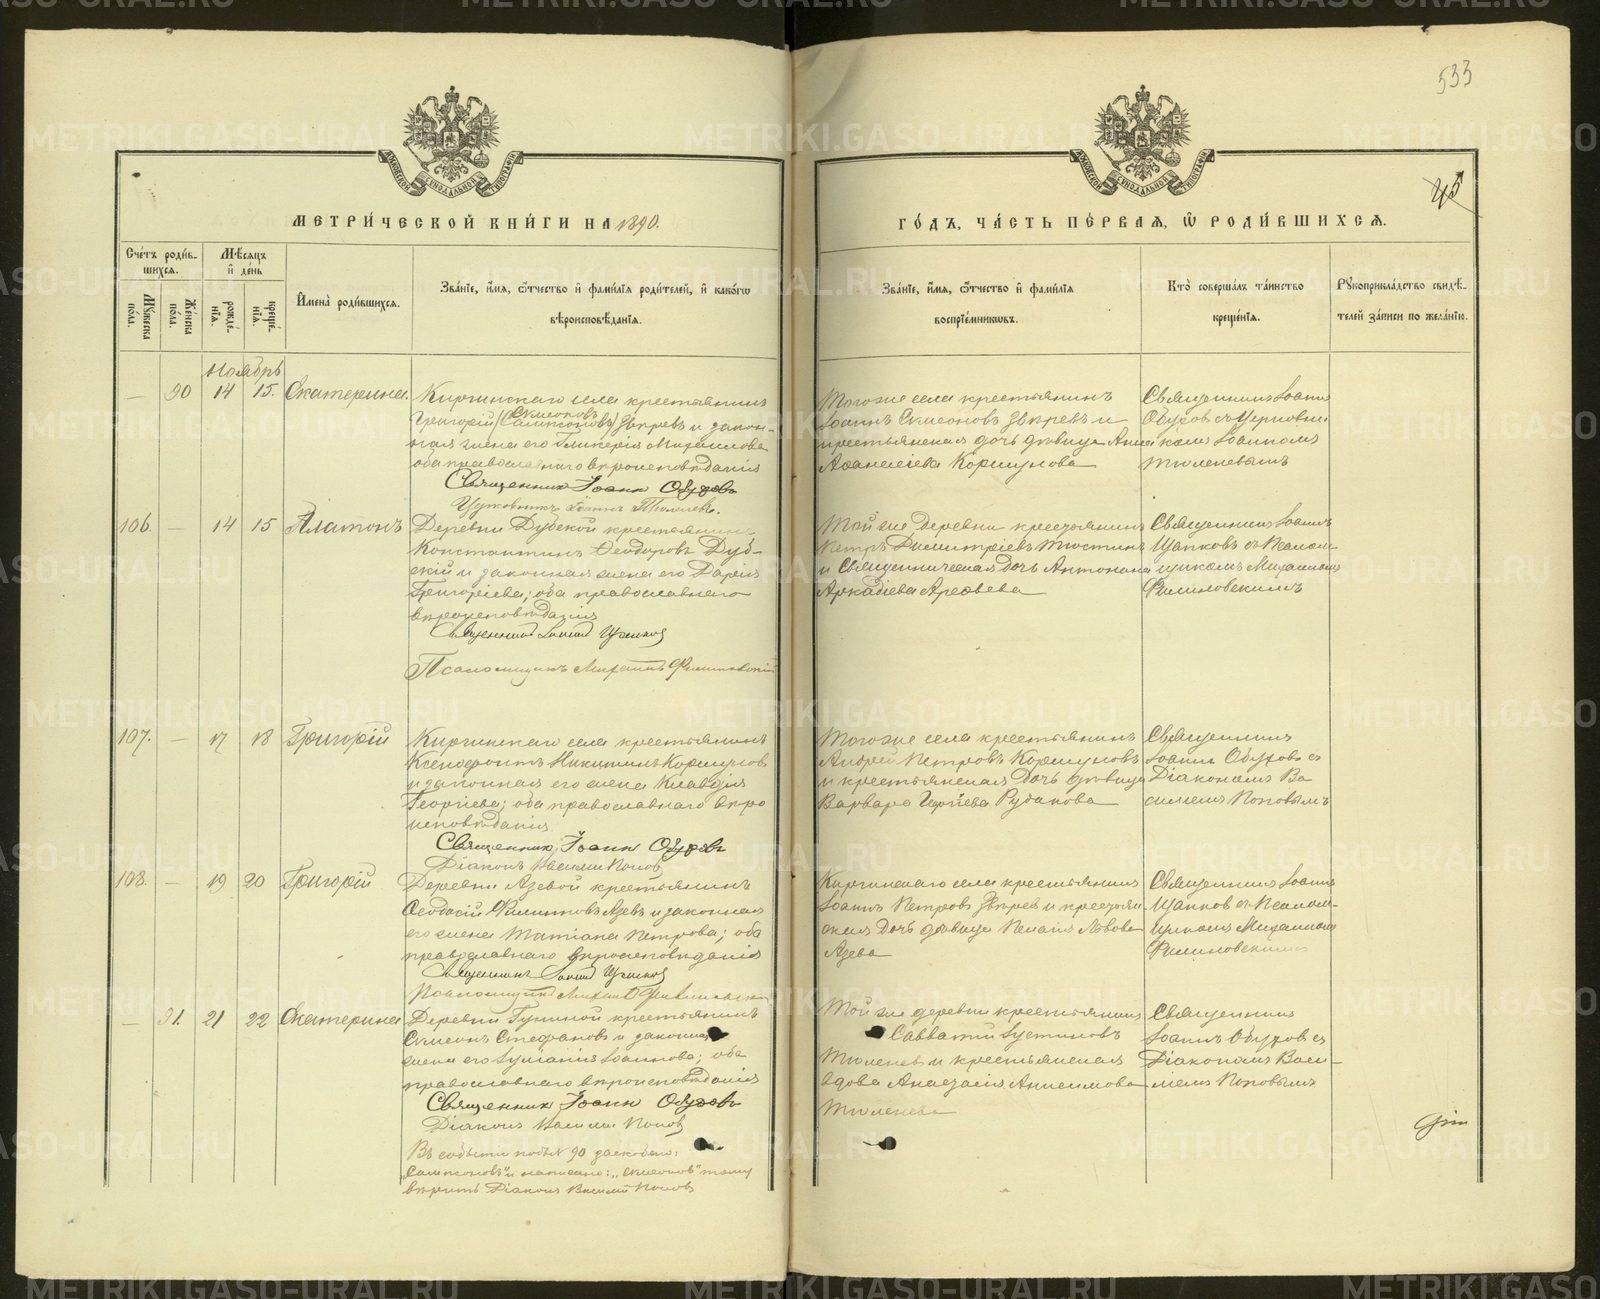 533
45
МОСКОВСКОЙ СѴНОДАЛЬНОЙ ТИПОГРАФІИ
МОСКОВСКОЙ СѴНОДАЛЬНОЙ ТИПОГРАФІИ
МЕТРИ́ЧЕСКОЙ КНИ́ГИ НА 1890.
ГО́ДЪ, ЧА́СТЬ ПЕ́РВАЯ, Ѡ҆ РОДИ́ВШИХСЯ.
Сче́тъ роди́вшихся.
Мꙋ́жеска по́ла.
Же́нска по́ла.
Мѣ́сяцъ и҆ де́нь
рожде́нїя.
креще́нїя.
И҆мена̀ роди́вшихся.
Зва́нїе, и҆́мя, ѻ҆́тчество и҆ фами́лїя роди́телей, и҆ како́гѡ вѣроисповѣ́данїя.
Зва́нїе, и҆́мя, ѻ҆́тчество и҆ фами́лїя воспрїе́мникѡвъ.
Кто̀ соверша́лъ та́инство креще́нїя.
Рꙋкоприкла́дство свидѣ́телей за́писи по жела́нїю.
Ноябрь
— 90 14 15. Екатерина.
Киргинскаго села крестьянинъ
Симеоновъ
Григорій (Сампсоновъ) Звѣревъ и закон-
ная жена его Гликерія Михаилова
оба православнаго вѣроисповѣданія
Священникъ Іоаннъ Обуховъ
Церковникъ Іоаннъ Тюленевъ.
Тогоже села крестьянинъ
Іоаннъ Симеоновъ Звѣревъ и
крестьянская дочь дѣвица Анна
Аѳанасіева Коршунова
Священникъ Іоаннъ
Обуховъ съ Церковни-
комъ Іоанномъ
Тюленевымъ
106. — 14 15 Платонъ
Деревни Дубской крестьянинъ
Константинъ Ѳеодоровъ Дуб-
скій и законная жена его Дарія
Григоріева; оба православнаго
вѣроисповѣданія
Священникъ Іоаннъ Цапковъ
Псаломщикъ Михаилъ Филиновскій
Той же деревни крестьянинъ
Петръ Димитріевъ
и Священническая дочь Антонина
Аркадіева Арефьева
Священникъ Іоаннъ
съ Псалом-
щикомъ Михаиломъ
107. — 17 18 Григорій
Киргинскаго села крестьянинъ
Ксенофонтъ Никитинъ Коршуновъ
и законная его жена Клавдія
Георгіева; оба православнаго вѣро
исповѣданія
Священникъ Іоаннъ Обуховъ
Діаконъ Василій Поповъ
Тогоже села крестьянинъ
Андрей Петровъ Коршуновъ
и крестьянская дочь дѣвица
Варвара Рудакова
Священникъ
Іоаннъ Обуховъ съ
Діакономъ Ва
силіемъ Поповымъ
108. — 19 20 Григорій
Деревни Азевой крестьянинъ
Ѳеодосій Филипповъ Азевъ и законная
его жена Татіана Петрова; оба
православнаго вѣроисповѣданія
Священникъ Іоаннъ
Псаломщикъ Михаилъ
Киргинскаго села крестьянинъ
Іоаннъ Петровъ Звѣревъ и крестьян-
ская дочь дѣвица Пелагія Львова
Азева
Священникъ Іоаннъ
съ Псалом-
щикомъ Михаиломъ
— 91. 21 22 Екатерина
Деревни Гуниной крестьянинъ
Симеонъ Стефановъ и законная
жена его Іуліанія Іоаннова; оба
православнаго вѣроисповѣданія
Священникъ Іоаннъ Обуховъ
Діаконъ Василій Поповъ
Той же деревни крестьянинъ
Савватій Іустиновъ
Тюленевъ и крестьянская
вдова Анастасія Анисимова
Тюленева
Священникъ
Іоаннъ Обуховъ съ
Діакономъ Васи-
ліемъ Поповымъ
Въ событіи подъ № 90 заскоблено:
„Сампсоновъ" и написано: „Симеоновъ" тому
вѣрить Діаконъ Василій Поповъ
METRIKI.GASO-URAL.RU